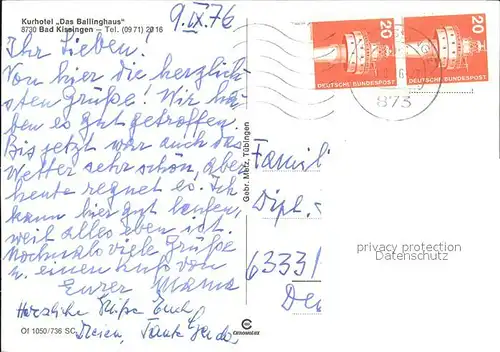 Kurhotel „Das Ballinghaus"
8730 Bad Kissingen – Tel. (0971) 2016
9.IX.76
Ihr Lieben!
Von hier die herzlich
sten Grüße! Wir ha
ben es gut getroffen.
Bis jetzt war auch das
Wetter sehr schön, aber
heute regnet es. Ich
kann hier gut laufen,
weil alles eben ist.
Nochmals viele Grüße
u. einen Kuß von
Eurer Mama
Herzliche Küsse Euch
Tante
Of 1050/736 SC
Gebr. Metz, Tübingen
20
DEUTSCHE BUNDESPOST
20
DEUTSCHE BUNDESPOST
873
Famil
Dipl.
6333
privacy protection
Datenschutz